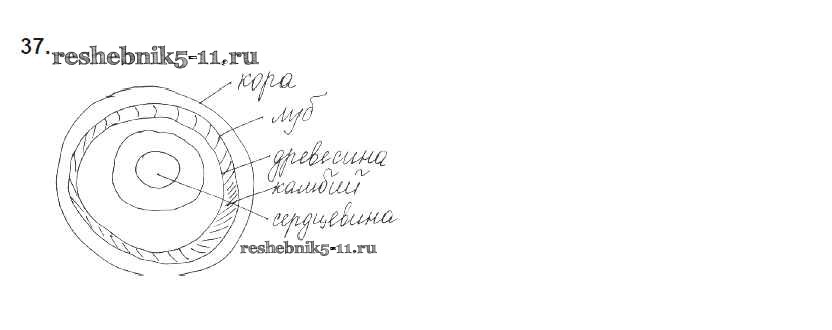 37.
reshebnik5-11.ru
кора
луб
древесина
камбий
сердцевина
reshebnik5-11.ru